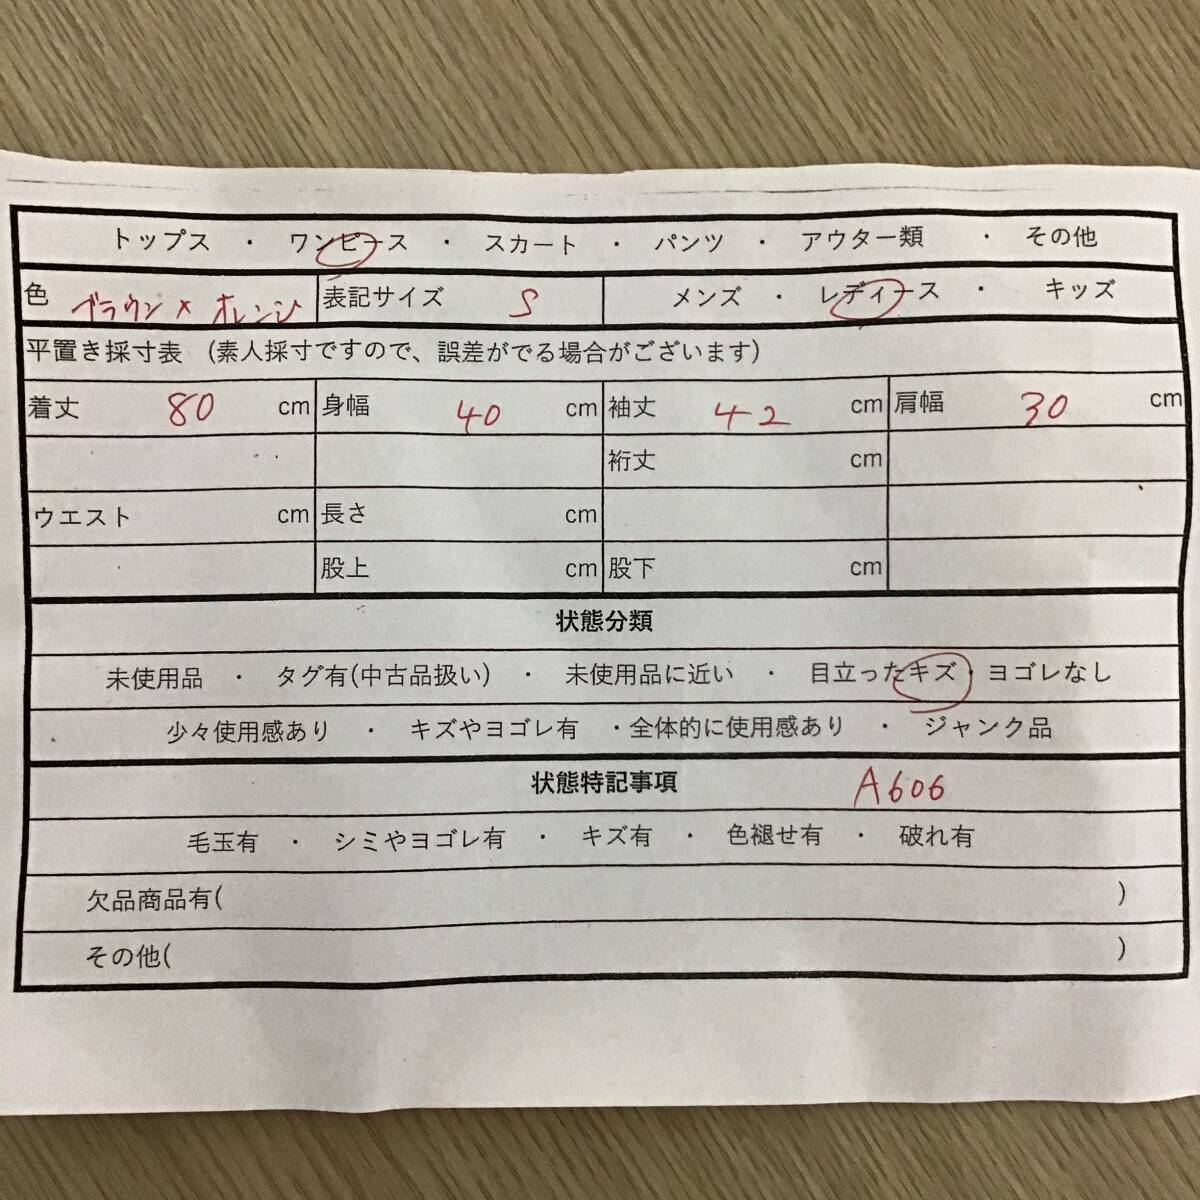 トップス ・ ワンピース ・ スカート ・ パンツ ・ アウター類 ・ その他
色 ブラウン×オレンジ 表記サイズ S メンズ ・ レディース ・ キッズ
平置き採寸表 (素人採寸ですので、誤差がでる場合がございます)
着丈 80 cm 身幅 40 cm 袖丈 42 cm 肩幅 30 cm
裄丈 cm
ウエスト cm 長さ cm
股上 cm 股下 cm
状態分類
未使用品 ・ タグ有(中古品扱い) ・ 未使用品に近い ・ 目立ったキズ・ヨゴレなし
少々使用感あり ・ キズやヨゴレ有 ・全体的に使用感あり ・ ジャンク品
状態特記事項 A606
毛玉有 ・ シミやヨゴレ有 ・ キズ有 ・ 色褪せ有 ・ 破れ有
欠品商品有( )
その他( )